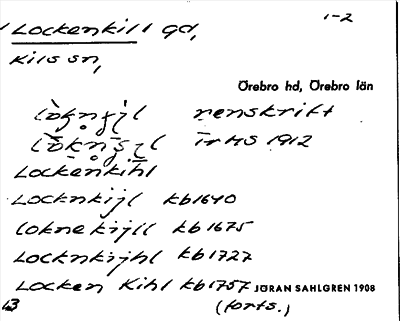 1-2
Lockenkill gd,
Kils sn,
Örebro hd, Örebro län
renskrift
ÏrHS 1912
Lockenkihl
Locknkijl kb1640
Loknekijll kb1675
Locknkijhl kb1727
Locken Kihl kb1757 JÖRAN SAHLGREN 1908
13 (forts.)